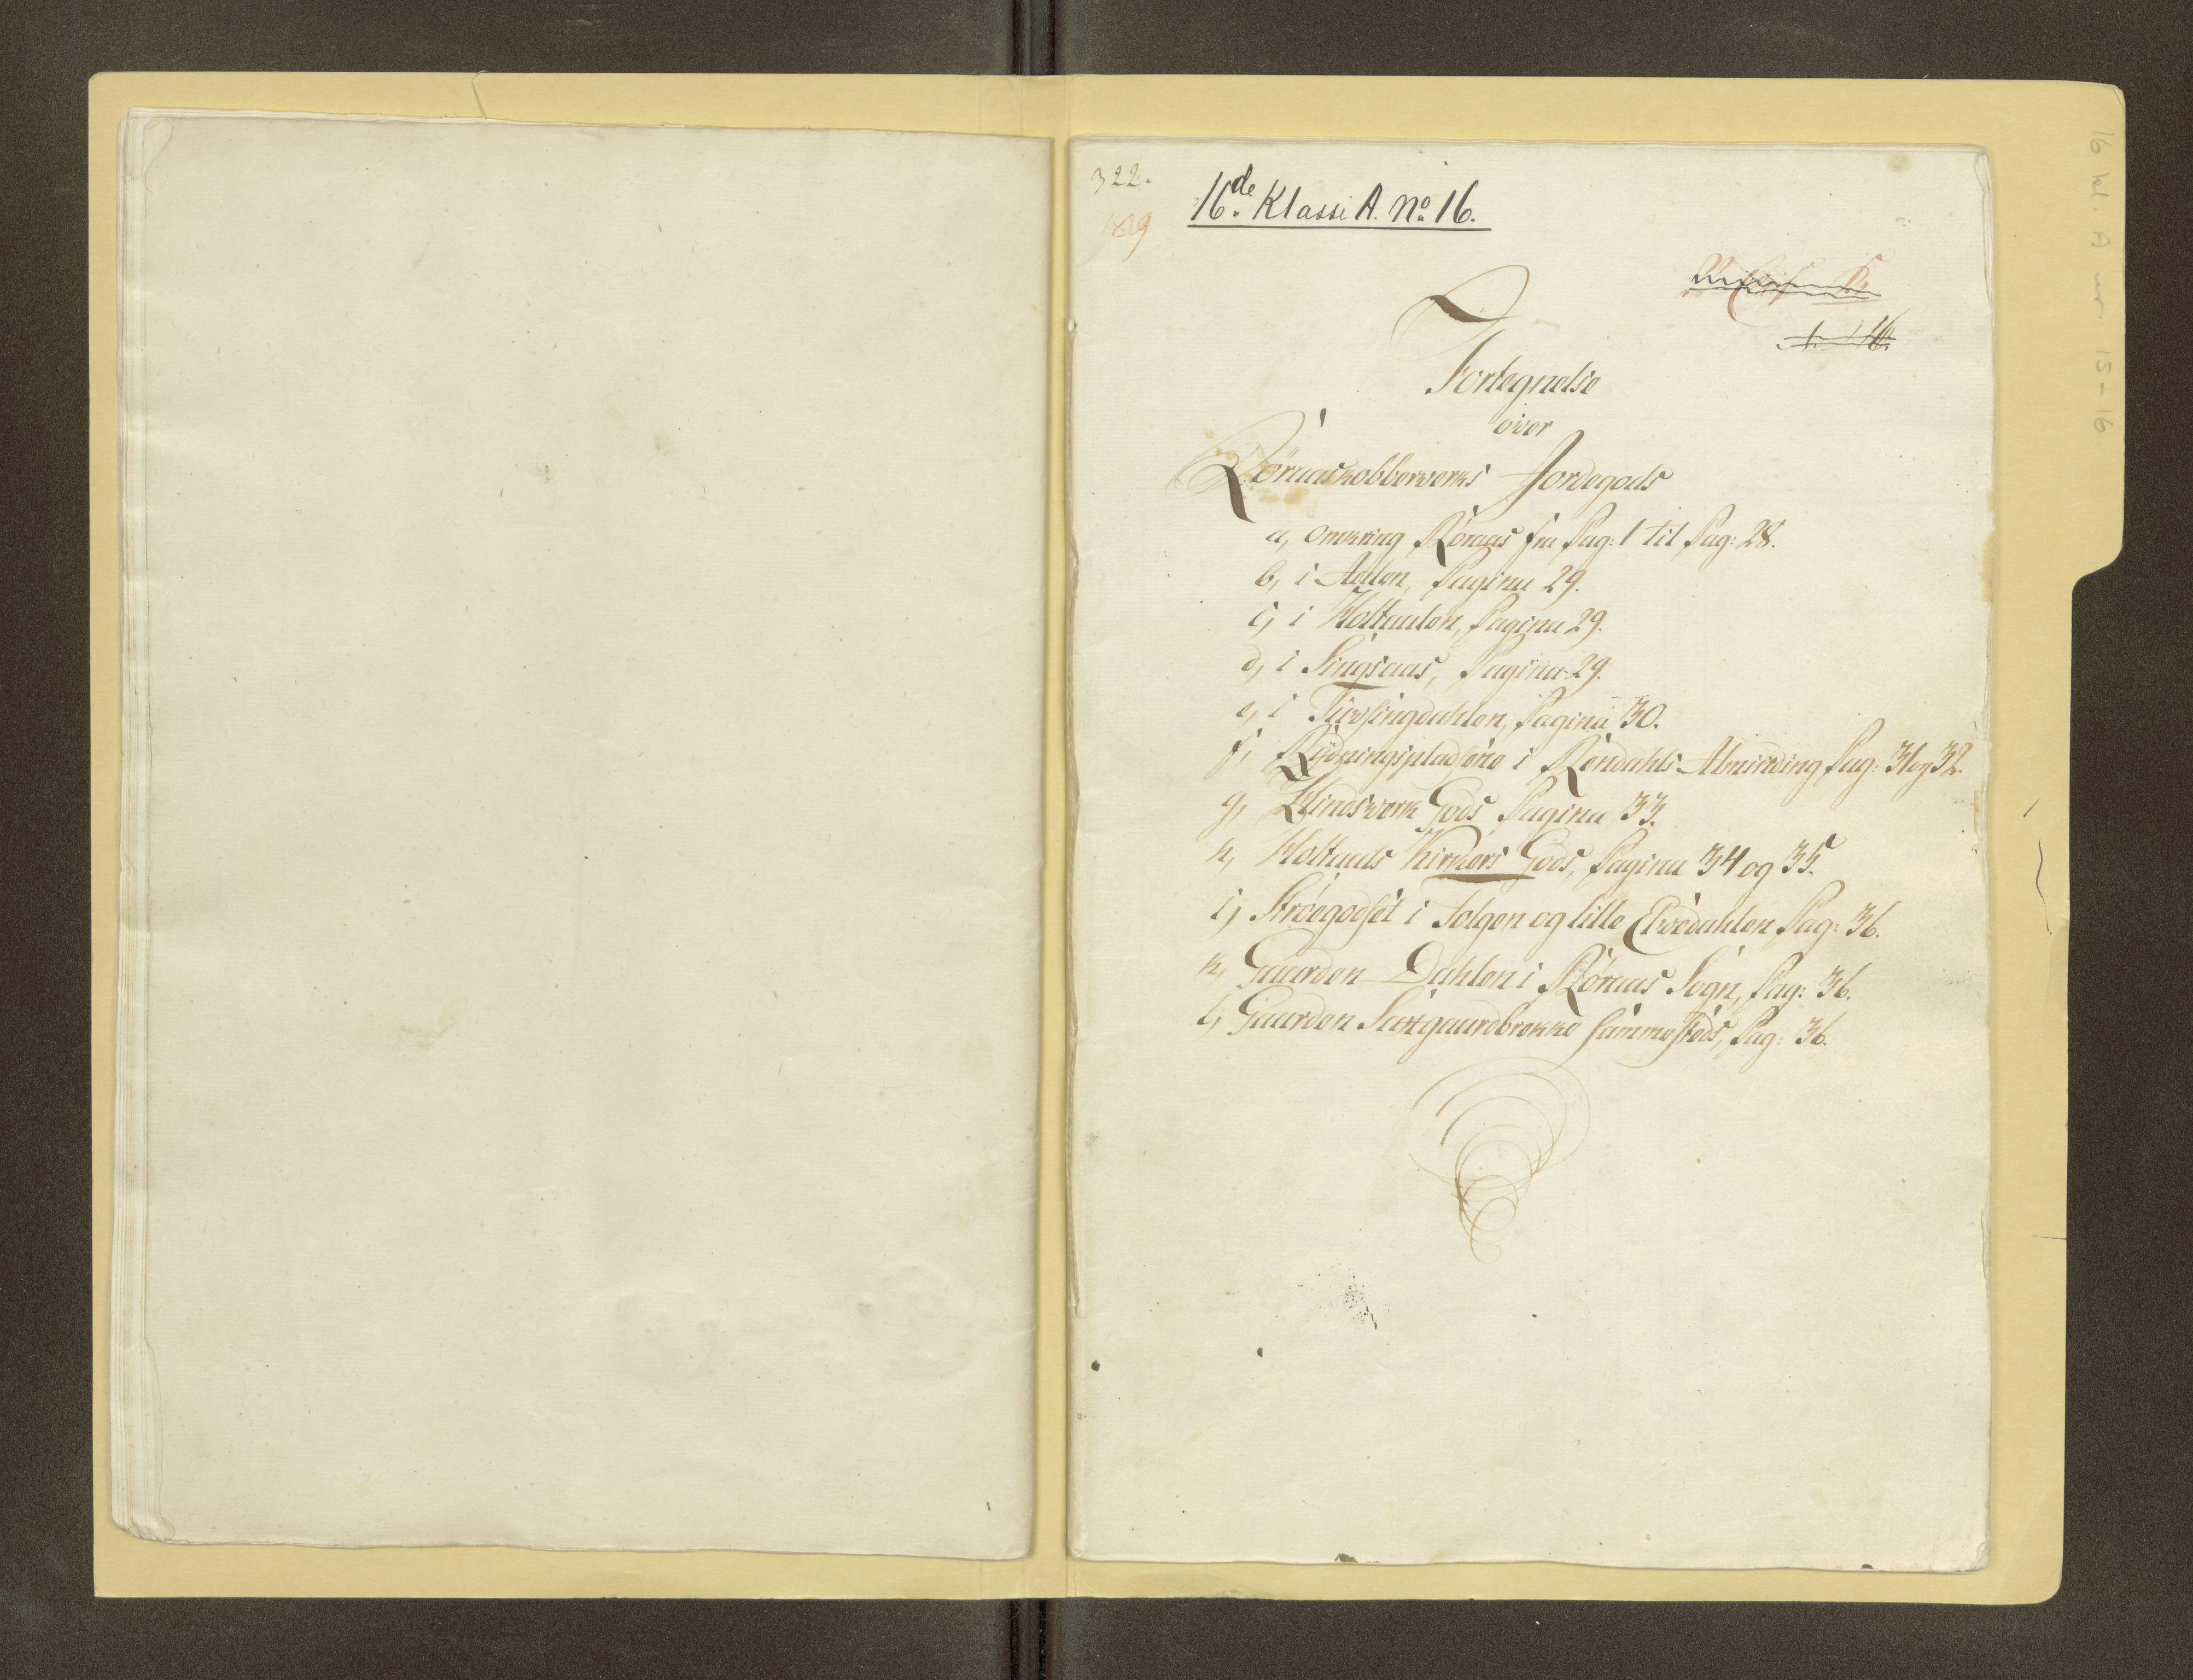 322.
1819
16de Klasse A. No 16.
A. 16.
Fortegnelse
over
Röraaskobberverks Jordegods
a, omkring Röraas fra Pag: 1 til Pag: 28.
b, i Aalen, Pagina 29.
c, i Holtaalen, Pagina 29.
d, i Singsaas, Pagina 29.
e, i Tydsingdahlen, Pagina 30.
f, Rydningspladsene i Rendahls Alminding Pag: 31 og 32.
g, Hindswerk Gods Pagina 33.
h, Holtaals Kirkers Gods, Pagina 34 og 35.
i, Ströegodset i Tolgen og lille Elvedahlen Pag: 36.
k, Gaarden Dahlen i Röraas Sogn, Pag: 36.
l, Gaarden Sundgaardbrekke sammesteds, Pag: 36.
16 kl. A nr 15-16